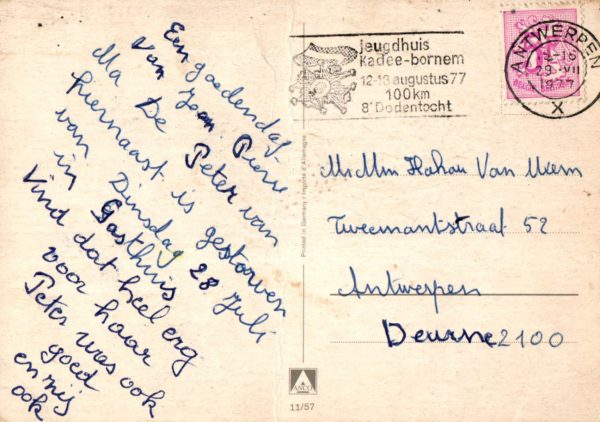 Een goedendag
van Jean Pierre
Ma De Peter van
hiernaast is gestorven
van Dinsdag 28 Juli
in Gasthuis
Vind dat heel erg
voor haar
Peter was ook
goed
en mij
ook
jeugdhuis
Kadee-bornem
12-13 augustus 77
100km
8e Dodentocht
ANTWERPEN
29 -VII
1977
X
Mr Mm Hahau Van Uxem
Tweemontstraat 52
Antwerpen
Deurne 2100
Printed in Germany / Imprimé d'Allemagne
ANCO
11/57